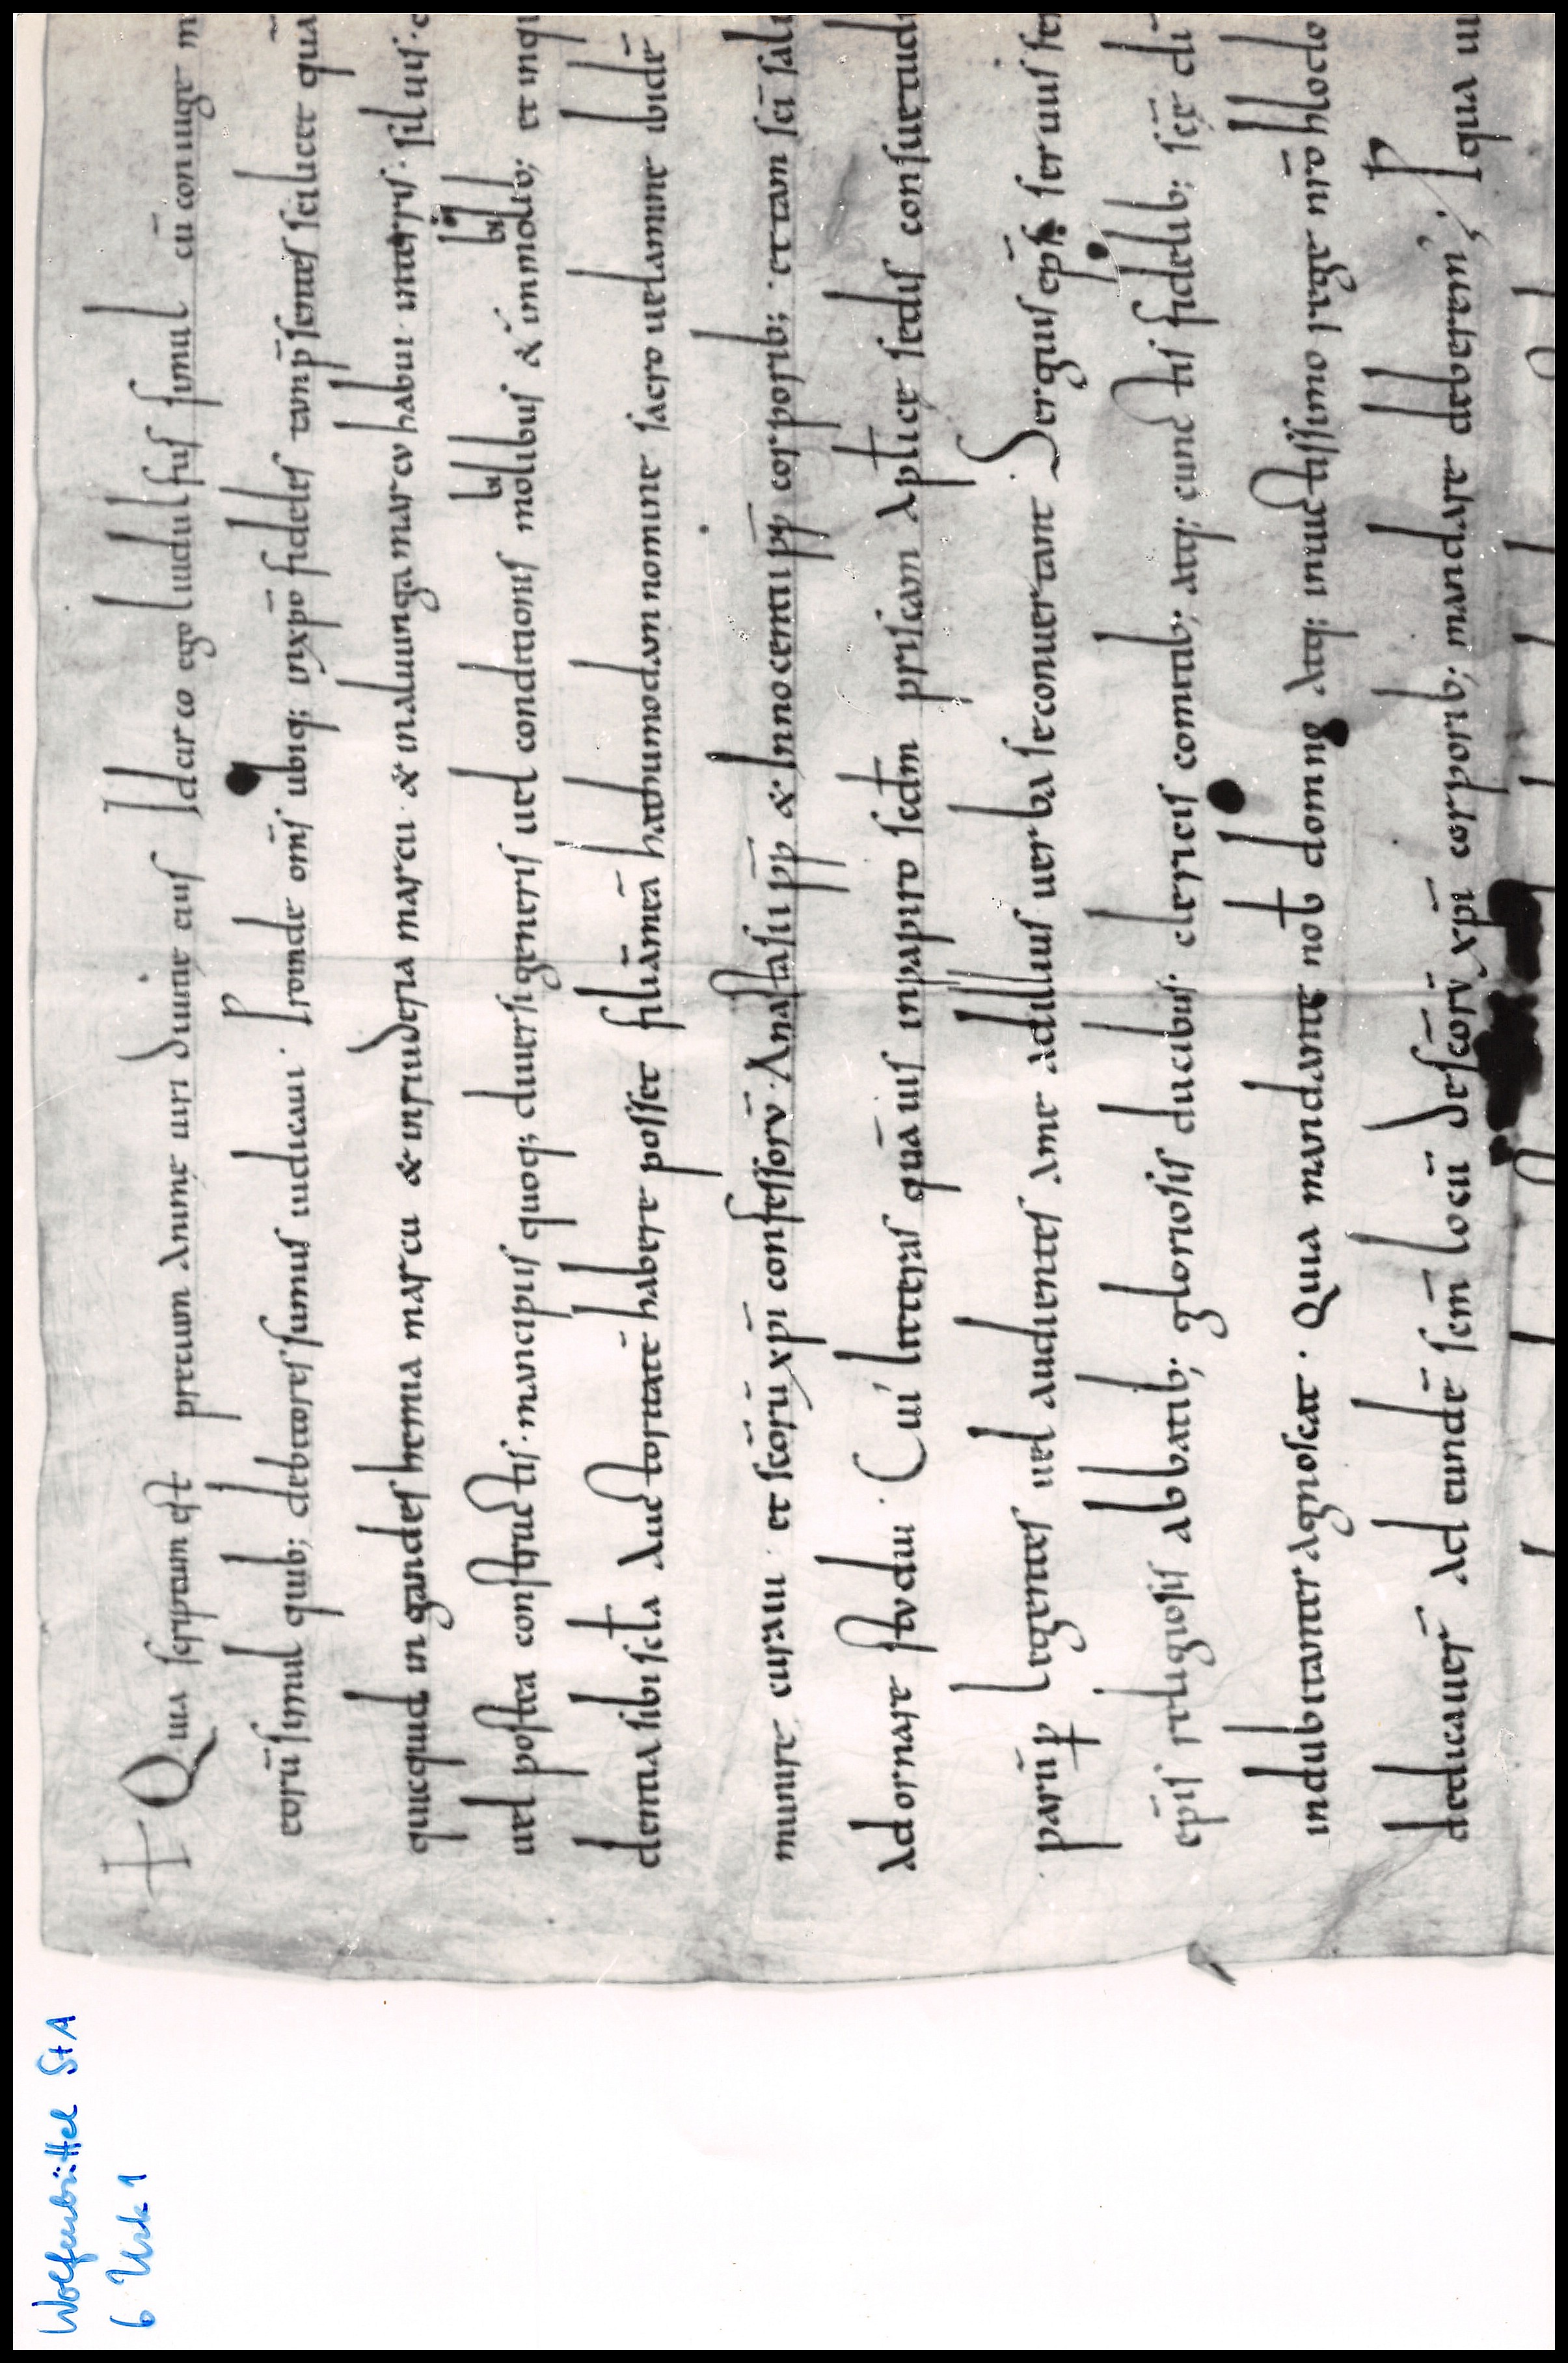 Wolfenbüttel StA
6 Urk 1
† Quia scriptum est pretium animę uiri diuitię eius Idcirco ego liudulfus simul cū coniuge m
eorū simul quib; debitores sumus iudicaui. Proinde om̄s ubiq; in xp̄o fideles tam p̄sentes scilicet quā
quicquid in gandeshemia marcu & in riuderia marcu & in aluunga marcu habui in terris. siluis. c
uel postea constructis. mancipiis quoq; diuersi generis uel conditionis mobilibus & inmobilib; et inqu
clentia sibi scła auctoritatē habere posset filiā meā hathumodan nomine sacro uelamine ibidē
munire curaui. et scōrū xp̄i confessorū. Anastasii pp̄ & Innocentii pp̄ corporib; et tam sc̄i sal
adornare studui. Cui litteras quā uis in papiro secdm priscam aplicę sedis consuetudi
partī p legentes uel audientes a me ad illius uerba se conuertant. Sergius ep̄s seruus ser
ep̄is religiosis abbatib; gloriosis ducibus. clericis comitib; atq; cunctis fidelib; scę di
indubitanter agnoscat. Quia mandante nob domno atq; inuictissimo rege nr̄o hlodo
dedicauer̄ ad eundē sem̄ locū de scōrū xp̄i corporib; mandare deberem; P qua ui